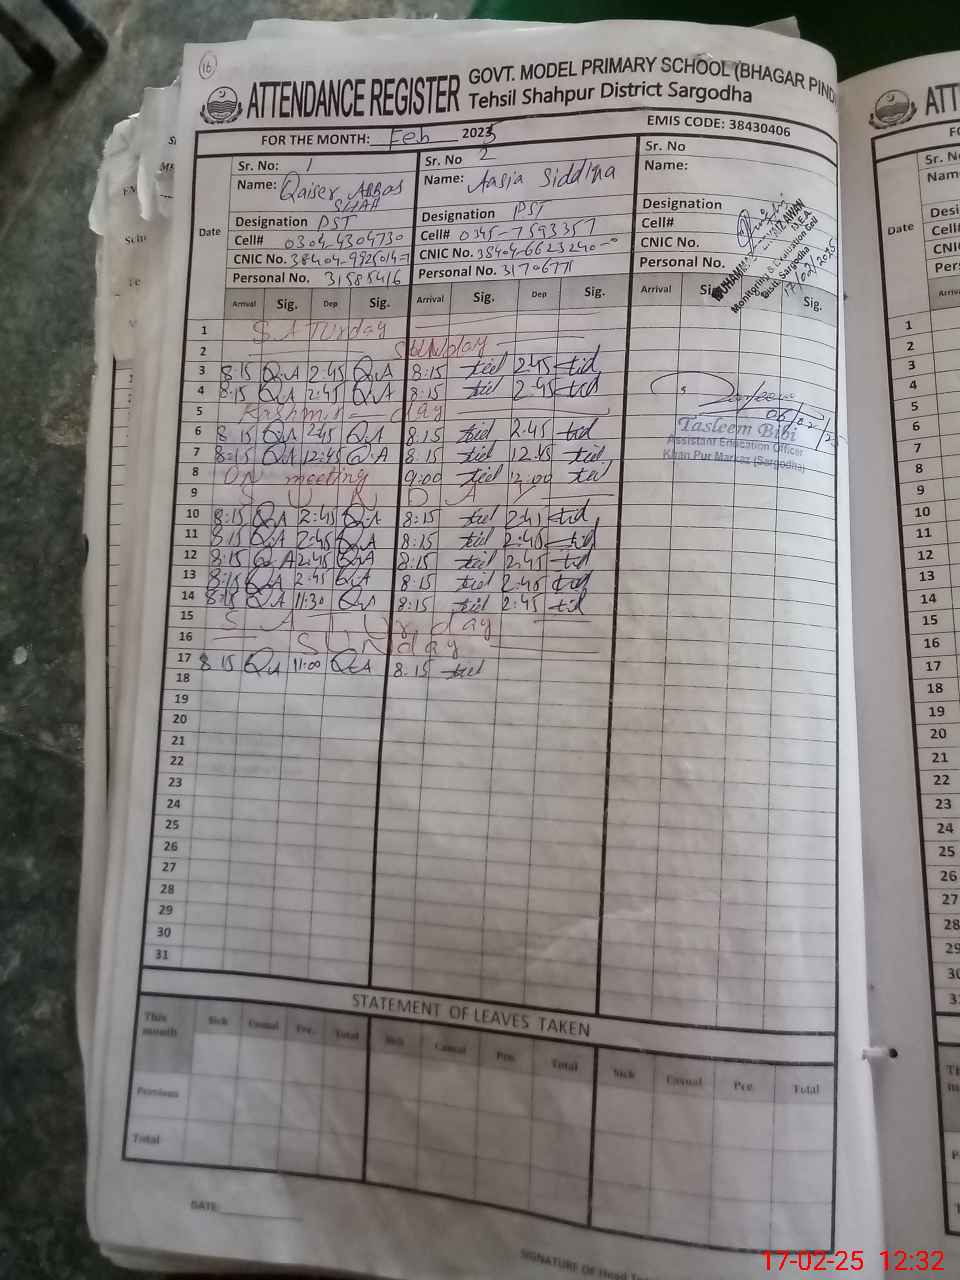 16
ATTENDANCE REGISTER GOVT. MODEL PRIMARY SCHOOL (BHAGAR PIND
Tehsil Shahpur District Sargodha
FOR THE MONTH: Feb 2025 EMIS CODE: 38430406
Date
Sr. No: 1
Name: Qaiser Abbas
SHAH
Designation PST
Cell# 0304-4304730
CNIC No.
Personal No. 31585416
Sr. No 2
Name: Aasia Siddiqa
Designation PST
Cell# 0345-7593357
CNIC No.
Personal No. 31706771
Sr. No
Name:
Designation
Cell#
CNIC No.
Personal No.
Monitoring & Evaluation Cell
Distt. Sargodha
17/02/2025
Arrival Sig. Dep Sig. Arrival Sig. Dep Sig. Arrival Sig.
1 SATURday
2 SUNday
3 8:15 Q.A 2:45 Q.A 8:15 2:45
4 8:15 Q.A 2:45 Q.A 8:15 2:45
5 Kashmir day
6 8:15 QA 2:45 QA 8:15 2:45
7 8:15 QA 12:45 Q.A 8:15 12:45
8 ON meeting 9:00 12:00
9 S U N D A Y
10 8:15 QA 2:45 Q.A 8:15 2:45
11 8:15 Q.A 2:45 Q.A 8:15 2:45
12 8:15 Q.A 2:45 Q.A 8:15 2:45
13 8:15 QA 2:45 QA 8:15 2:45
14 8:15 QA 11:30 QA 8:15 2:45
15 SATUrday
16 SUNday
17 8:15 QA 11:00 QA 8:15
18
19
20
21
22
23
24
25
26
27
28
29
30
31
06/02/25
Tasleem Bibi
Assistant Education Officer
Khan Pur Markaz (Sargodha)
STATEMENT OF LEAVES TAKEN
This month Sick Casual Pre. Total Sick Casual Pre. Total Sick Casual Pre. Total
Previous
Total
DATE:
SIGNATURE OF Head
ATT
Sr. No
Name
Desi
Cell#
CNIC
Per
Date
1
2
3
4
5
6
7
8
9
10
11
12
13
14
15
16
17
18
19
20
21
22
23
24
25
26
27
28
29
30
17-02-25 12:32